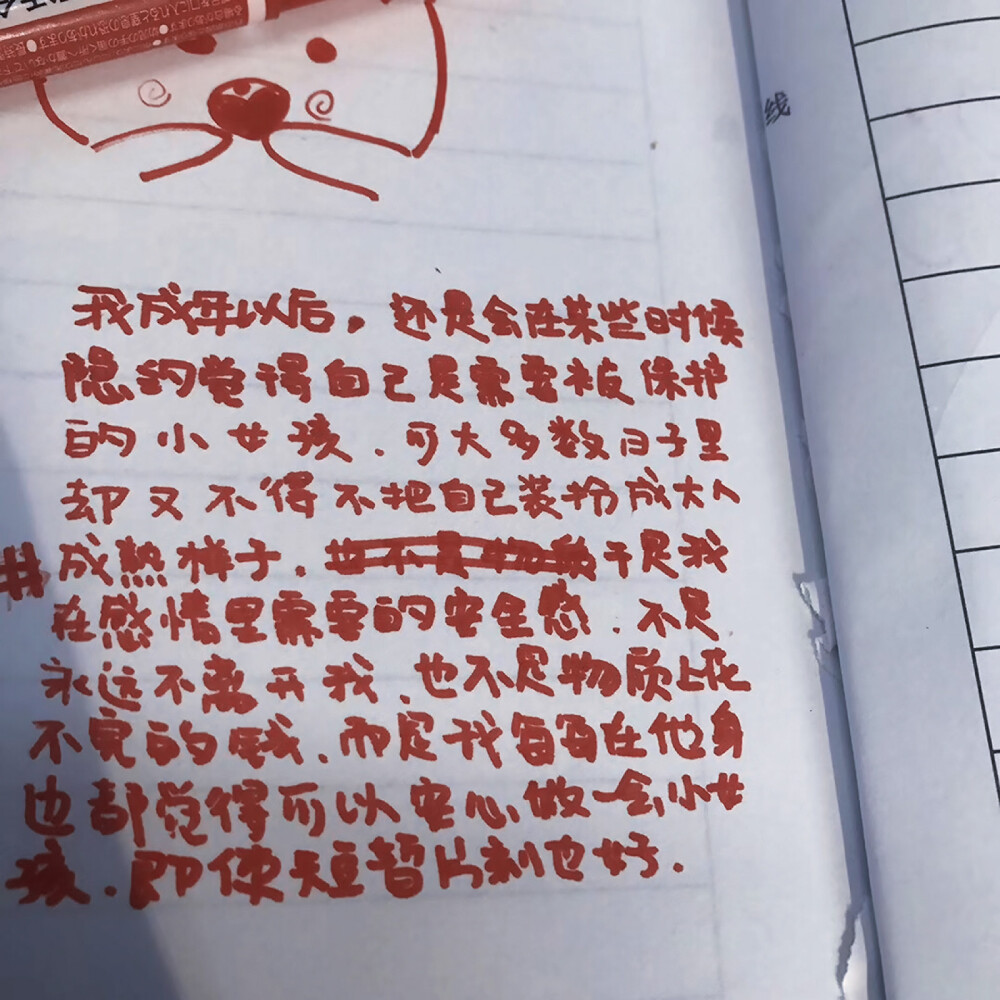 线
我成年以后，还是会在某些时候
隐约觉得自己是需要被保护
的小女孩.可大多数日子里
却又不得不把自己装扮成大人
成熟样子.于是我
在感情里需要的安全感.不是
永远不离开我.也不是物质上花
不完的钱.而是我每每在他身
边都觉得可以安心做一会小女
孩.即使短暂片刻也好.